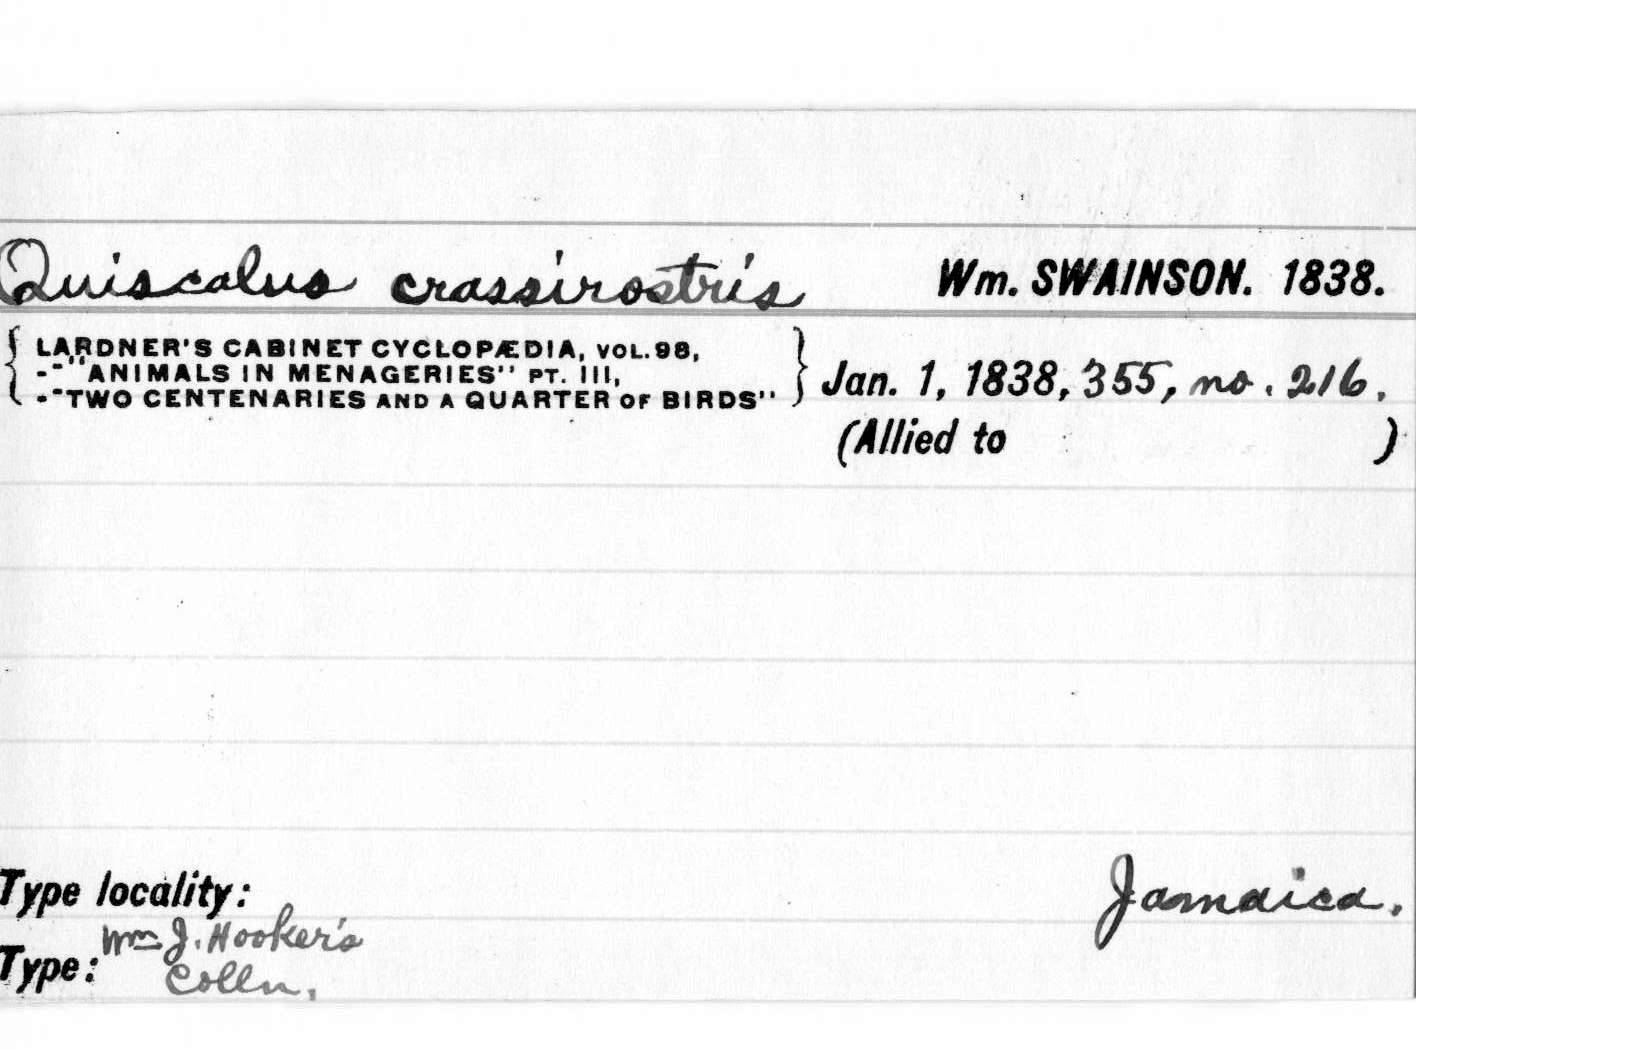 Quiscalus crassirostris Wm. SWAINSON. 1838.
LARDNER'S CABINET CYCLOPÆDIA, VOL. 98,
--"ANIMALS IN MENAGERIES" PT. III,
--"TWO CENTENARIES AND A QUARTER OF BIRDS"
Jan. 1, 1838, 355, no. 216.
(Allied to )
Type locality: Jamaica.
Type: Wm J. Hooker's
Colln.